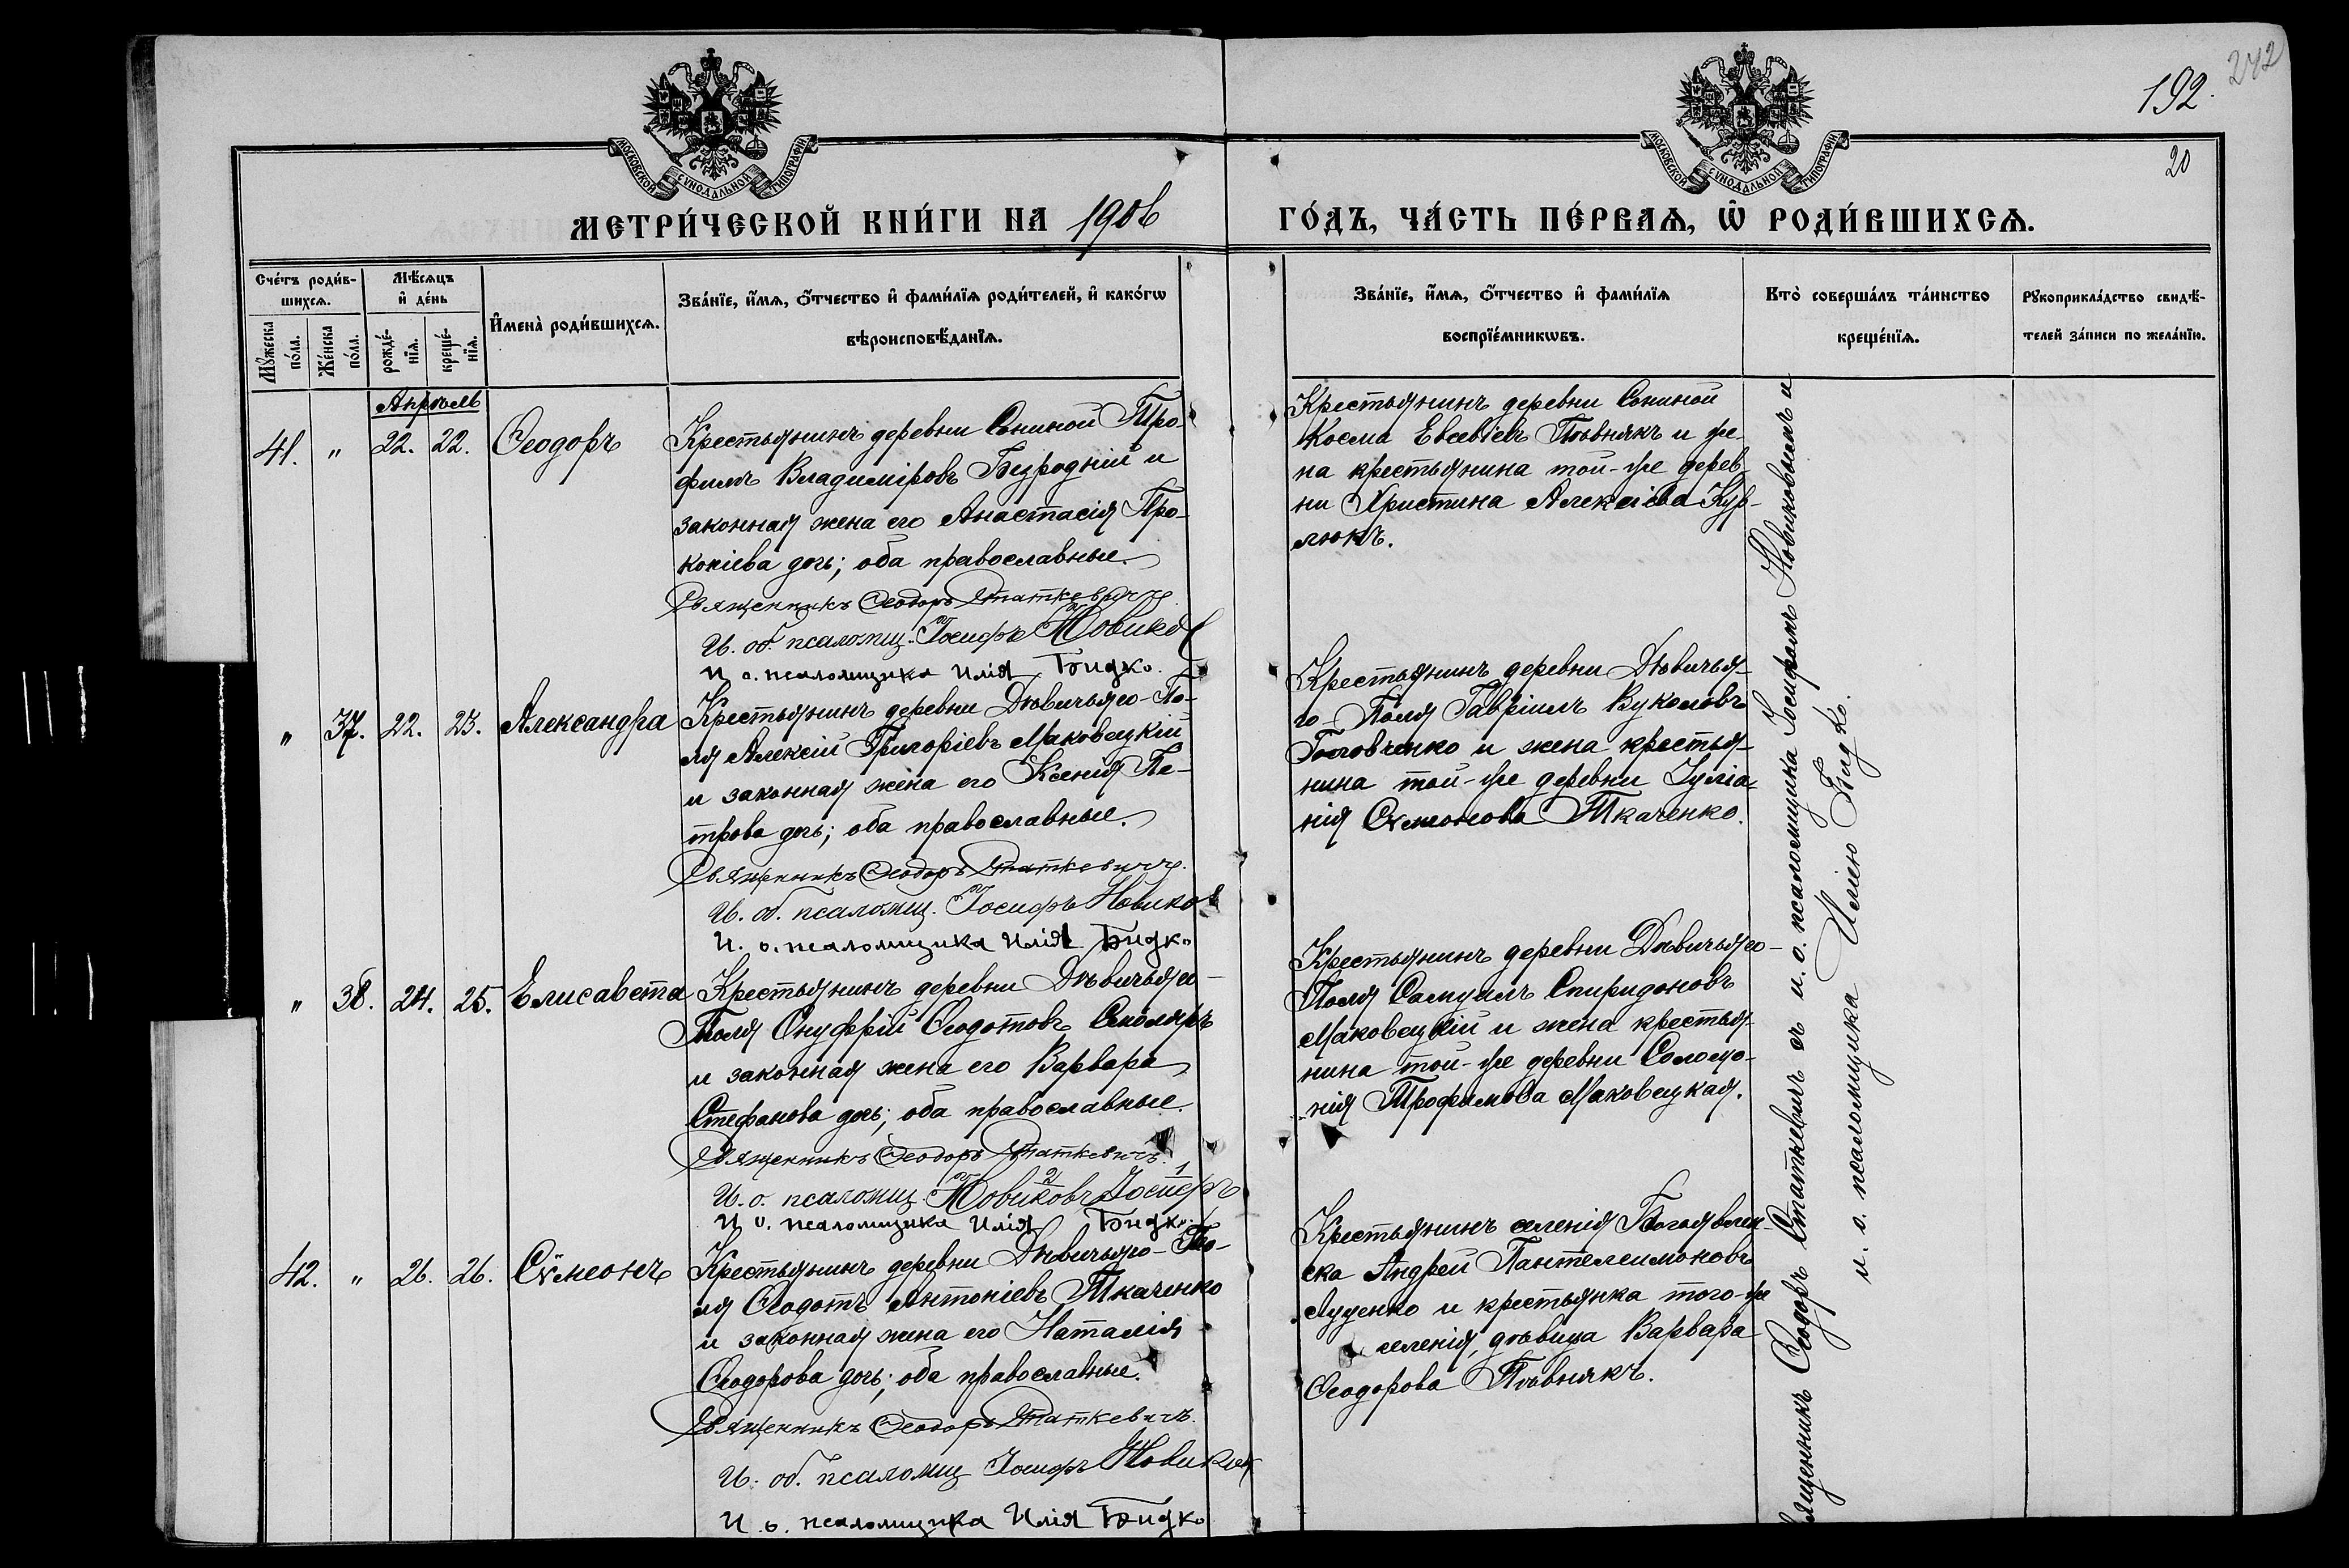 192.
242
20
МОСКОВСКОЙ СУНОДАЛЬНОЙ ТИПОГРАФІИ
МОСКОВСКОЙ СУНОДАЛЬНОЙ ТИПОГРАФІИ
МЕТРИ́ЧЕСКОЙ КНИ́ГИ НА 1906 ГО́ДЪ, ЧА́СТЬ ПЕ́РВАѦ, Ѡ҆ РОДИ́ВШИХСѦ.
Сче́тъ роди́в-
шихсѧ.
Мꙋ́жеска по́ла.
Же́нска по́ла.
Мѣ́сѧцъ
и҆ де́нь
рожде́-
нїѧ.
креще́-
нїѧ.
И҆мена̀ роди́вшихсѧ.
Зва́нїе, и҆́мѧ, ѻ҆́тчество и҆ фами́лїѧ роди́телей, и҆ како́гѡ
вѣроисповѣ́данїѧ.
Зва́нїе, и҆́мѧ, ѻ҆́тчество и҆ фами́лїѧ
воспрїе́мникѡвъ.
Кто̀ соверша́лъ та́инство
креще́нїѧ.
Рꙋкоприкла́дство свидѣ́-
телей за́писи по жела́нїю.
Апрѣль
41. " 22. 22. Ѳеодоръ
Крестьянинъ деревни Сониной Тро-
фимъ Владиміровъ Безродній и
законная жена его Анастасія Про-
копіева дочь; оба православные.
Священникъ Ѳеодоръ Статкевичъ
И. об. псаломщ. Іосифъ Новиковъ
И. о. псаломщика Илія Бидко.
Крестьянинъ деревни Сониной
Косма Евсевіевъ Пивнякъ и же-
на крестьянина той-же дерев-
ни Христина Алексіева Кур-
люкъ.
" 37. 22. 23. Александра
Крестьянинъ деревни Дѣвичьяго-По-
ля Алексій Григоріевъ Маковецкій
и законная жена его Ксенія Пе-
трова дочь; оба православные.
Священникъ Ѳеодоръ Статкевичъ.
И. об. псаломщ. Іосифъ Новиковъ
И. о. псаломщика Илія Бидко
Крестьянинъ деревни Дѣвичья-
го-Поля Гавріилъ Вуколовъ
и жена крестья-
нина той-же деревни Іуліа-
нія Сѵмеонова Ткаченко.
" 38. 24. 25. Елисавета
Крестьянинъ деревни Дѣвичьяго-
Поля Онуфрій Ѳеодотовъ Столяръ
и законная жена его Варвара
Стефанова дочь; оба православные.
Священникъ Ѳеодоръ Статкевичъ.
И. о. псаломщ. Новиковъ Іосифъ
И о. псаломщика Илія Бидко.
Крестьянинъ деревни Дѣвичьяго-
Поля Самуилъ Спиридоновъ
Маковецкій и жена крестья-
нина той-же деревни Соломо-
нія Трофимова Маковецкая.
42. " 26. 26. Сѵмеонъ
Крестьянинъ деревни Дѣвичьяго-По-
ля Ѳеодотъ Антоніевъ Ткаченко
и законная жена его Наталія
Ѳеодорова дочь; оба православные.
Священникъ Ѳеодоръ Статкевичъ.
И. об. псаломщ Іосифъ Новиковъ
И. о. псаломщика Илія Бидко
Крестьянинъ селенія Богоявлен-
ска Андрей Пантелеимоновъ
Луценко и крестьянка того-же
селенія, дѣвица Варвара
Ѳеодорова Пивнякъ.
Священникъ Ѳеодоръ Статкевичъ съ и. о. псаломщика Іосифомъ Новиковымъ и
и. о. псаломщика Иліею Бидко.